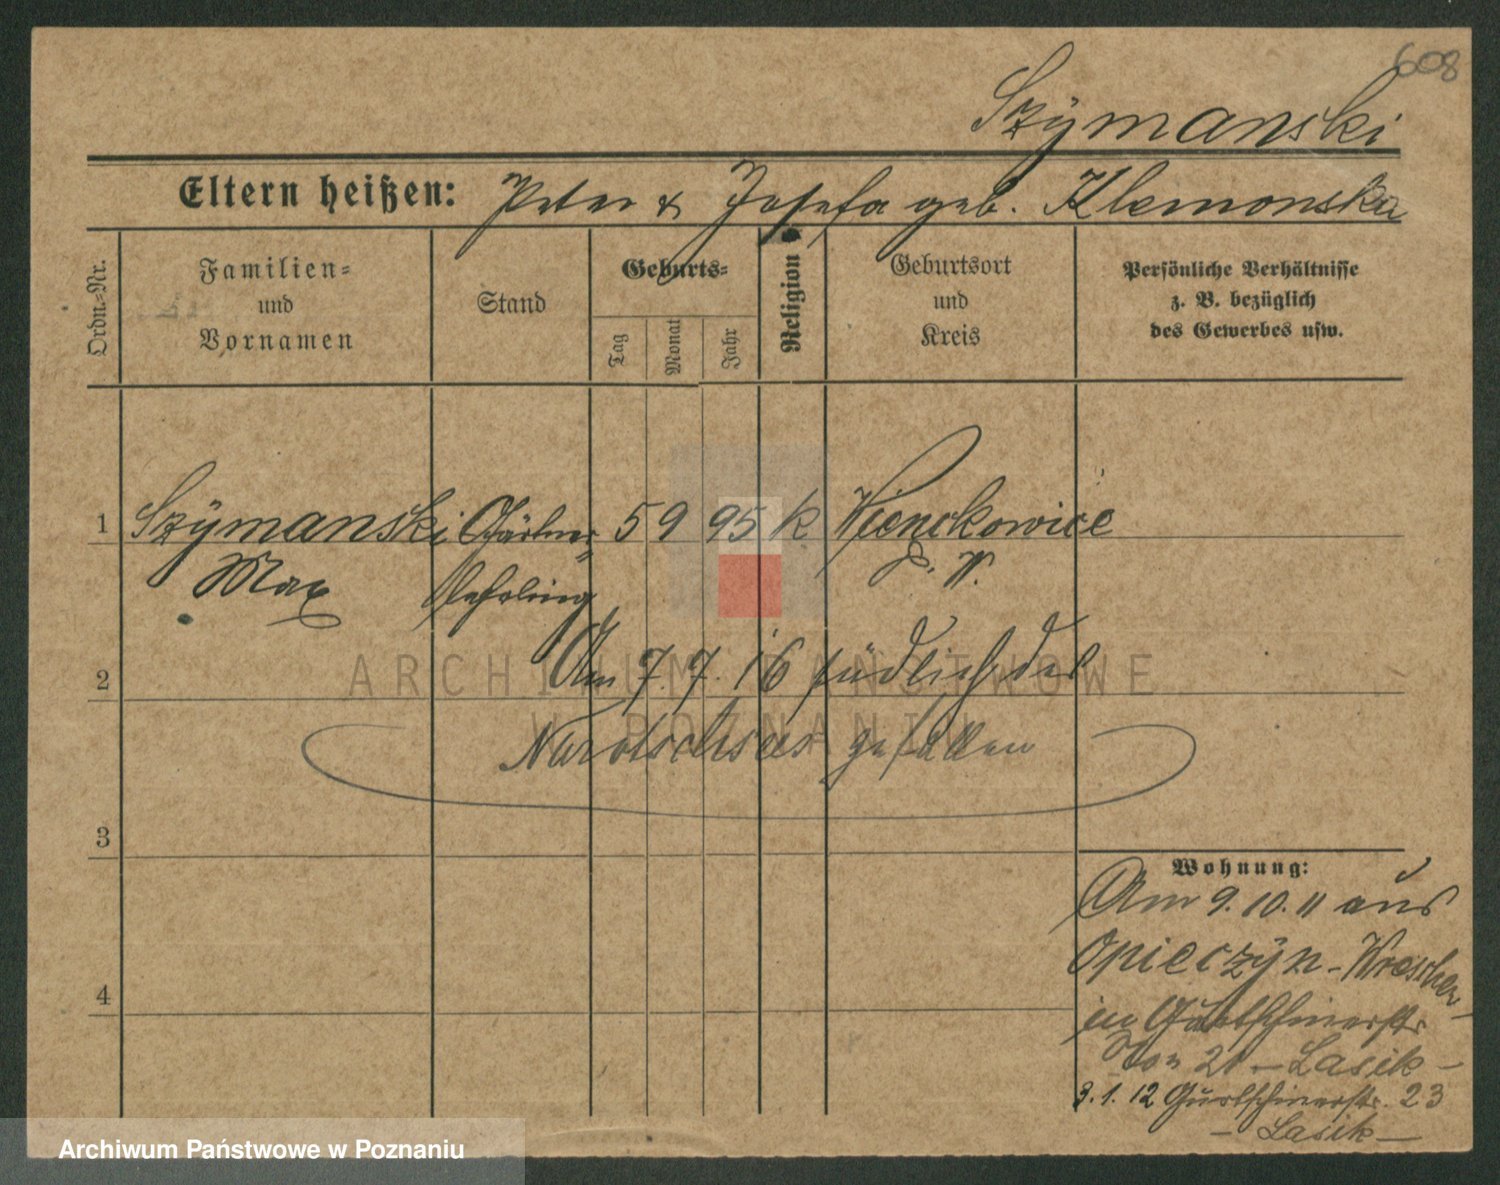 608
Szymanski
Eltern heißen: Peter & Josefa geb. Klemonska
Ordn.-Nr.
Familien-
und
Vornamen
Stand
Geburts-
Tag
Monat
Jahr
Religion
Geburtsort
und
Kreis
Persönliche Verhältnisse
z. B. bezüglich
des Gewerbes usw.
1 Szymanski Gärtner- 5 9 95 k Wienckowice
Max lehrling P. W.
2 Am 7. 7. 16 südlich des
Narotschsees gefallen
3
4
Wohnung:
Am 9. 10. 11 aus
Opieczyn - Wreschen
in Gurtschinerstr
No 21 - Lasik -
3. 1. 12 Gurtschinerstr. 23
- Lasik -
ARCHIWUM PAŃSTWOWE
W POZNANIU
Archiwum Państwowe w Poznaniu